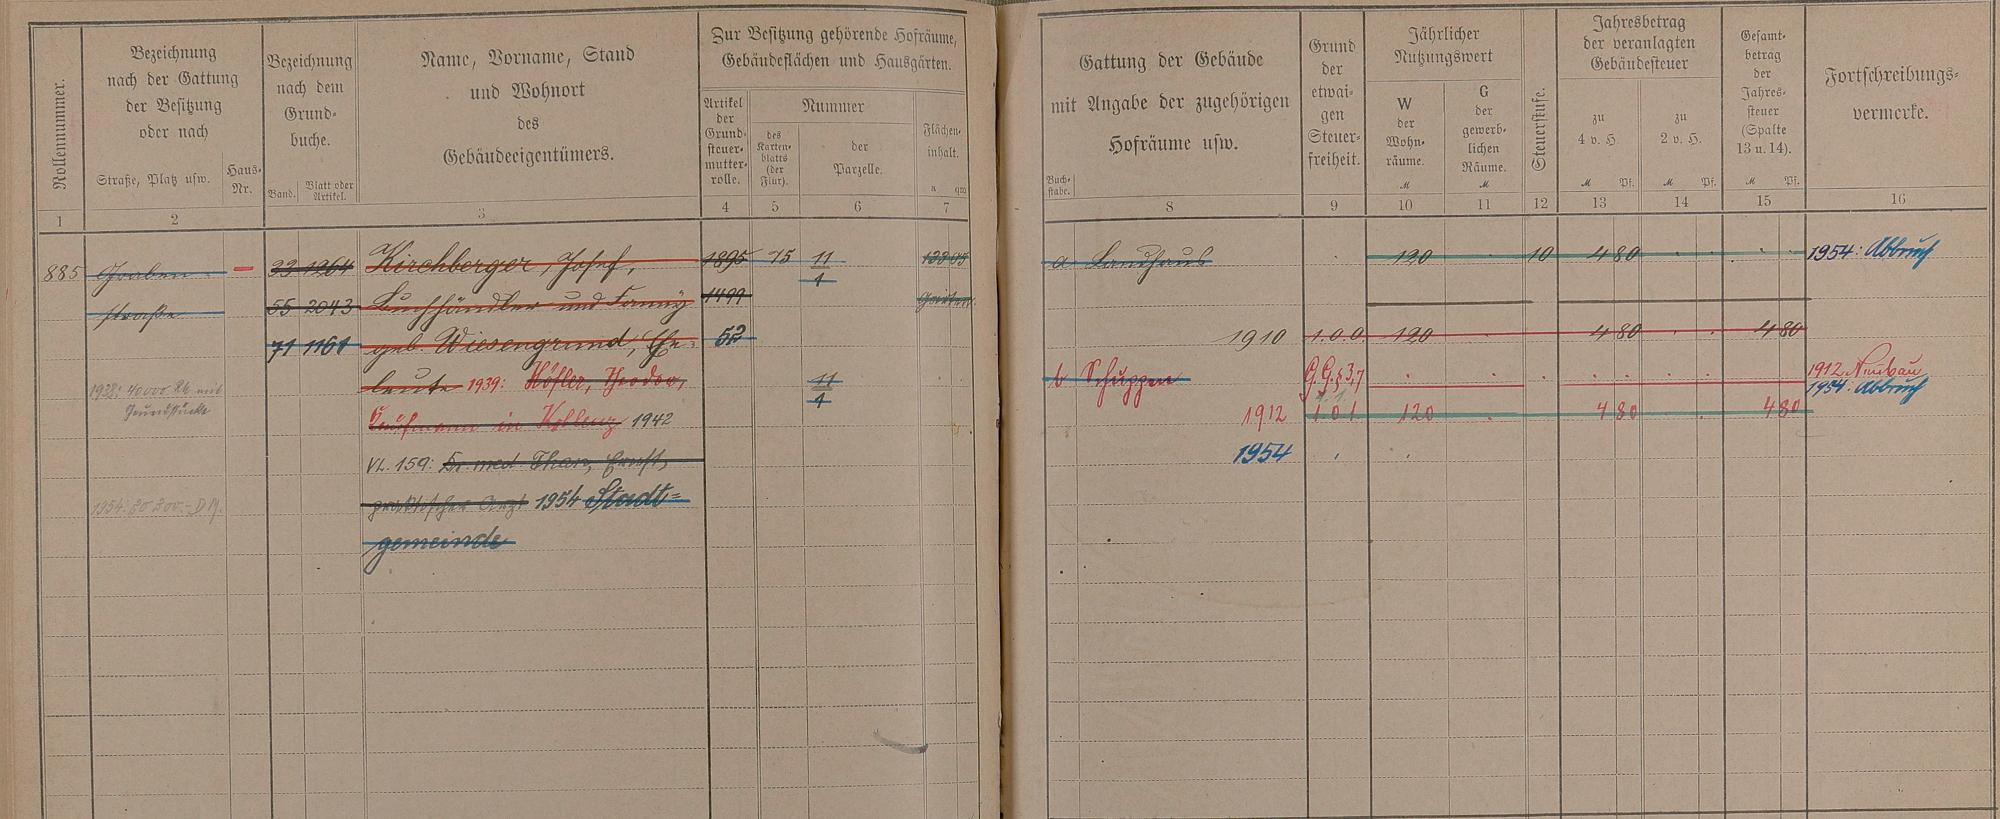 Rollennummer.
Bezeichnung
nach der Gattung
der Besitzung
oder nach
Straße, Platz usw.
Haus-
Nr.
Bezeichnung
nach dem
Grund-
buche.
Band.
Blatt oder
Artikel.
Name, Vorname, Stand
und Wohnort
des
Gebäudeeigentümers.
Zur Besitzung gehörende Hofräume,
Gebäudeflächen und Hausgärten.
Artikel
der
Grund-
steuer-
mutter-
rolle.
Nummer
des
Karten-
blatts
(der
Flur).
der
Parzelle.
Flächen-
inhalt.
a qm
1 2 3 4 5 6 7
885 Graben- – 33 1264 Kirchberger, Josef, 1895 75 11
4
straße 55 2043 Buchhändler und Fanny 1499 Garten
71 1161 geb. Wiesengrund, Ehe- 52
leute 1939: Höfler, Theodor, 11
4
1938: 40000 RM mit
Grundstücke
Kaufmann in Koblenz 1942
VL. 159: Dr. med. Ernst,
praktischer Arzt 1954 Stadt=
gemeinde
Gattung der Gebäude
mit Angabe der zugehörigen
Hofräume usw.
Buch-
stabe.
Grund
der
etwai-
gen
Steuer-
freiheit.
Jährlicher
Nutzungswert
W
der
Wohn-
räume.
M
G
der
gewerb-
lichen
Räume.
M
Steuerstufe.
Jahresbetrag
der veranlagten
Gebäudesteuer
zu
4 v. H.
M Pf.
zu
2 v. H.
M Pf.
Gesamt-
betrag
der
Jahres-
steuer
(Spalte
13 u. 14).
M Pf.
Fortschreibungs-
vermerke.
8 9 10 11 12 13 14 15 16
a Landhaus 120 10 4 80 1954: Abbruch
1910 1.0.0 120 4 80 4 80
b Schuppen G.G. § 3,7 1912 Neubau
1954: Abbruch
1912 1 0 1 120 4 80 4 80
1954